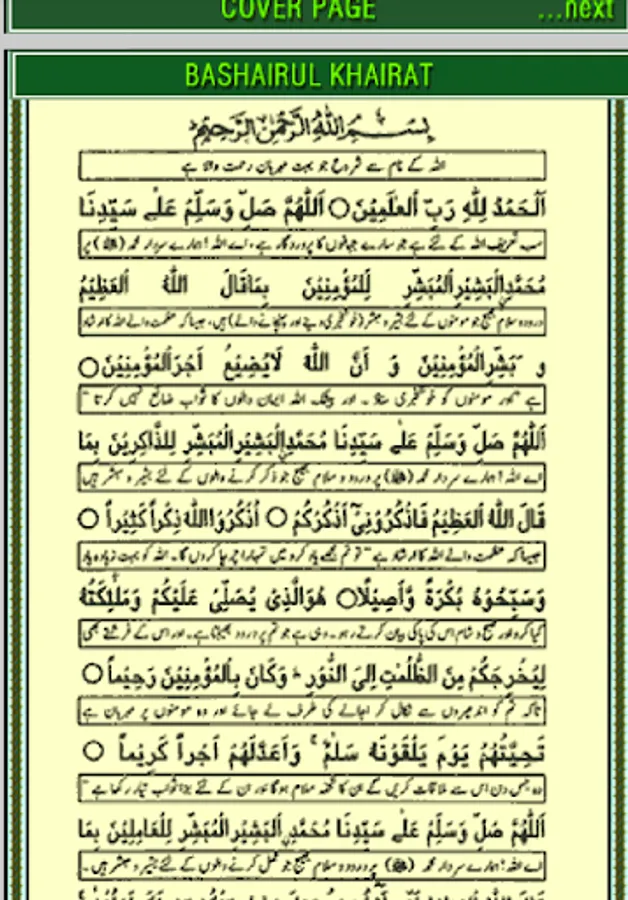 COVER PAGE ...next
BASHAIRUL KHAIRAT
بِسْمِ اللهِ الرَّحْمٰنِ الرَّحِيْمِ
اللہ کے نام سے شروع جو بہت مہربان رحمت والا ہے
اَلْحَمْدُ لِلّٰهِ رَبِّ الْعٰلَمِيْنَ○ اَللّٰهُمَّ صَلِّ وَسَلِّمْ عَلٰى سَيِّدِنَا
سب تعریف اللہ کے لئے ہے جو سارے جہانوں کا پروردگار ہے، اے اللہ! ہمارے سردار محمد (ﷺ) پر
مُحَمَّدِ الْبَشِيْرِ الْمُبَشِّرِ لِلْمُؤْمِنِيْنَ بِمَا قَالَ اللهُ الْعَظِيْمُ
درود و سلام بھیج جو مومنوں کے لئے بشیر و مبشر (خوشخبری دینے اور پہنچانے والے) ہیں، جیسا کہ عظمت والے اللہ کا ارشاد
وَ بَشِّرِ الْمُؤْمِنِيْنَ وَ اَنَّ اللهَ لَا يُضِيْعُ اَجْرَ الْمُؤْمِنِيْنَ○
ہے "اور مومنوں کو خوشخبری سناؤ ۔ اور بیشک اللہ ایمان والوں کا ثواب ضائع نہیں کرتا "
اَللّٰهُمَّ صَلِّ وَسَلِّمْ عَلٰى سَيِّدِنَا مُحَمَّدِ الْبَشِيْرِ الْمُبَشِّرِ لِلذَّاكِرِيْنَ بِمَا
اے اللہ! ہمارے سردار محمد (ﷺ) پر درود و سلام بھیج جو ذکر کرنے والوں کے لئے بشیر و مبشر ہیں
قَالَ اللهُ الْعَظِيْمُ فَاذْكُرُوْنِيْٓ اَذْكُرْكُمْ ○ اُذْكُرُوا اللهَ ذِكْرًا كَثِيْرًا ○
جیسا کہ عظمت والے اللہ کا ارشاد ہے " تو تم مجھے یاد کرو میں تمہارا چرچا کروں گا۔ اللہ کو بہت زیادہ یاد
وَسَبِّحُوْهُ بُكْرَةً وَّاَصِيْلًا○ هُوَ الَّذِيْ يُصَلِّيْ عَلَيْكُمْ وَمَلٰٓئِكَتُهٗ
کیا کرو اور صبح و شام اس کی پاکی بیان کرتے رہو۔ وہی ہے جو تم پر درود بھیجتا ہے۔ اور اس کے فرشتے بھی
لِيُخْرِجَكُمْ مِنَ الظُّلُمٰتِ اِلَى النُّوْرِ ؕ وَكَانَ بِالْمُؤْمِنِيْنَ رَحِيْمًا○
تاکہ تم کو اندھیروں سے نکال کر اجالے کی طرف لے جائے اور وہ مومنوں پر مہربان ہے
تَحِيَّتُهُمْ يَوْمَ يَلْقَوْنَهٗ سَلٰمٌ ۚ وَاَعَدَّ لَهُمْ اَجْرًا كَرِيْمًا ○
وہ جس دن اس سے ملاقات کریں گے ان کا تحفہ سلام ہوگا اور ان کے لئے بڑا ثواب تیار رکھا ہے "
اَللّٰهُمَّ صَلِّ وَسَلِّمْ عَلٰى سَيِّدِنَا مُحَمَّدِ الْبَشِيْرِ الْمُبَشِّرِ لِلْعَامِلِيْنَ بِمَا
اے اللہ! ہمارے سردار محمد (ﷺ) پر درود و سلام بھیج جو عمل کرنے والوں کے لئے بشیر و مبشر ہیں ۔